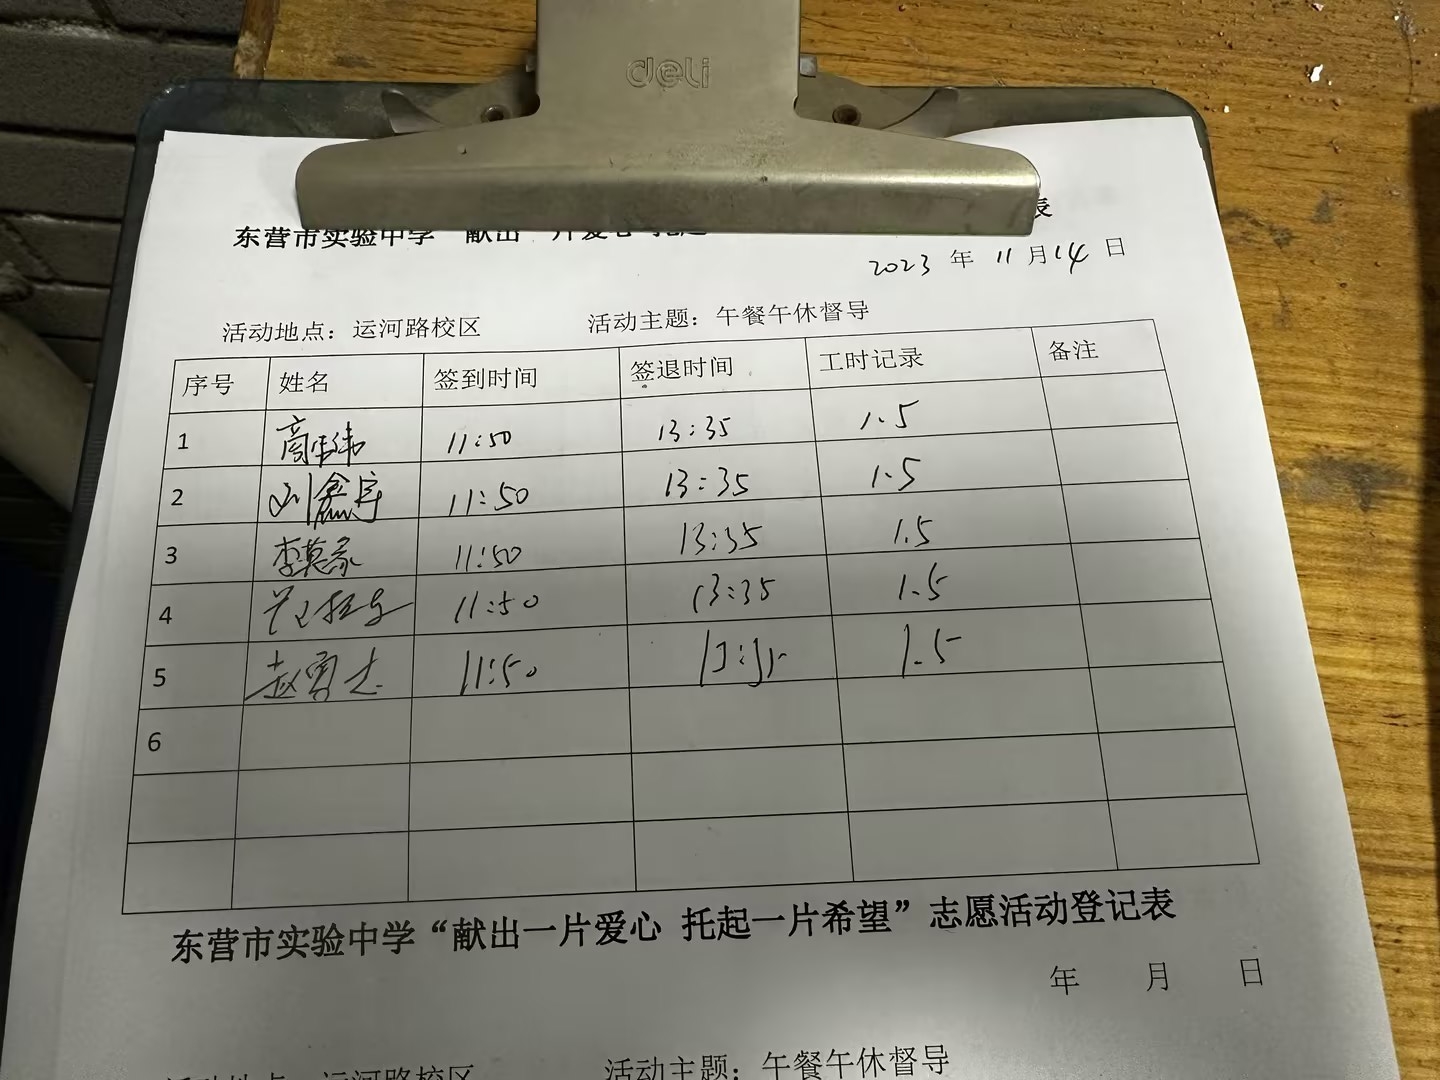 deli
东营市实验中学“献出一片爱心 托起
表
2023 年 11 月 14 日
活动地点：运河路校区 活动主题：午餐午休督导
序号 姓名 签到时间 签退时间 工时记录 备注
1 11:50 13:35 1.5
2 刘鑫宇 11:50 13:35 1.5
3 11:50 13:35 1.5
4 11:50 13:35 1.5
5 11:50 13:35 1.5
6
东营市实验中学“献出一片爱心 托起一片希望”志愿活动登记表
年 月 日
活动地点：运河路校区 活动主题：午餐午休督导